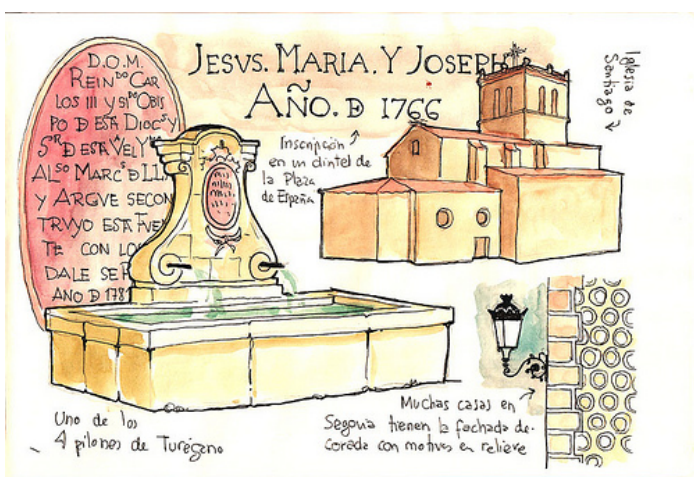 D.O.M.
REIN^DO CAR
LOS III Y S^DO OBIS
PO D ESTA DIOC^S Y
S^R D ESTA VEL Y
AL^SO MARC^S D
Y ARGVE SECON
TRVYO ESTA FVE
TE CON LO
DALE SE
ANO D 178
JESVS. MARIA. Y JOSEPH
AÑO. D 1766
Inscripción
en un dintel de
la Plaza
de España
Iglesia de
Santiago
Uno de los
4 pilones de Turégano
Muchas casas en
Segovia tienen la fachada de-
corada con motivos en relieve